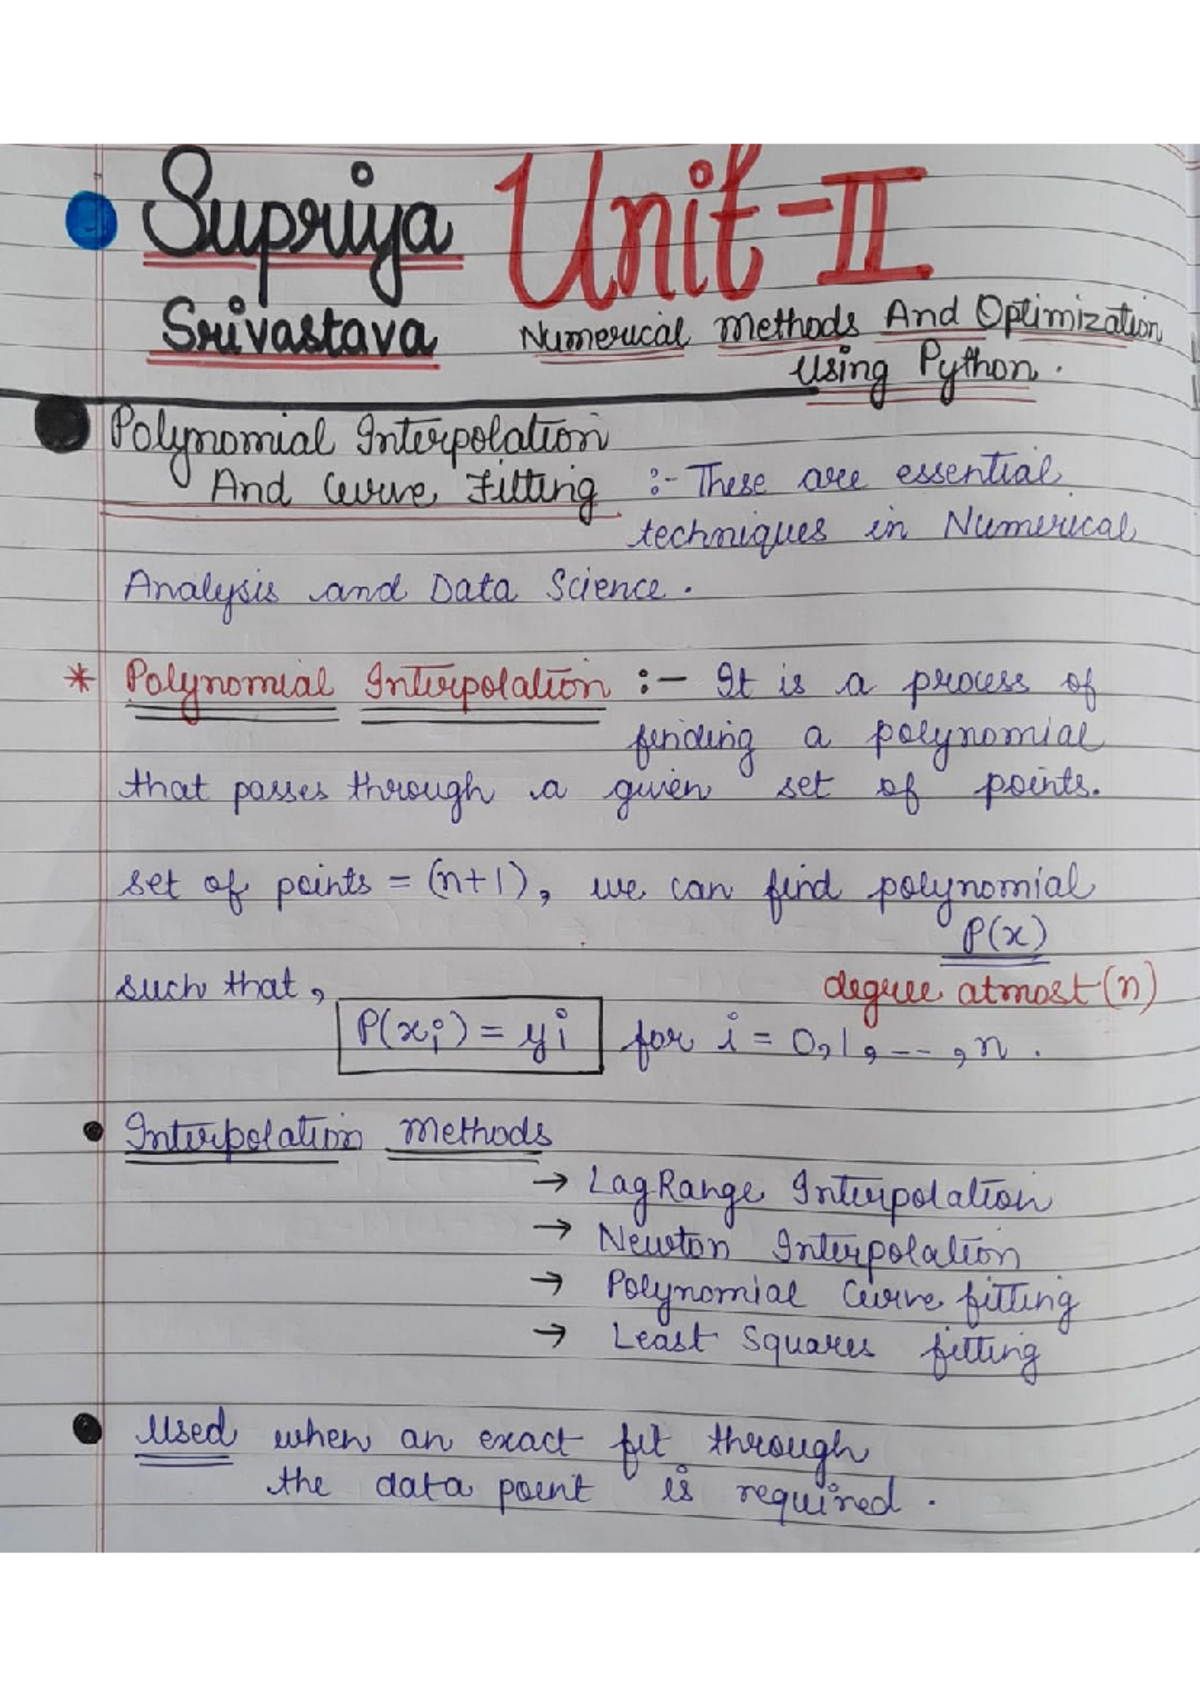 Supriya Unit-II
Srivastava Numerical Methods And Optimization
Using Python.
Polynomial Interpolation
And Curve Fitting :- These are essential
techniques in Numerical
Analysis and Data Science.
* Polynomial Interpolation :- It is a process of
finding a polynomial
that passes through a given set of points.
set of points = (n+1), we can find polynomial
P(x)
such that, degree atmost (n)
P(xi) = yi for i = 0,1,---,n.
Interpolation Methods
→ LagRange Interpolation
→ Newton Interpolation
→ Polynomial Curve fitting
→ Least Squares fitting
Used when an exact fit through
the data point is required.